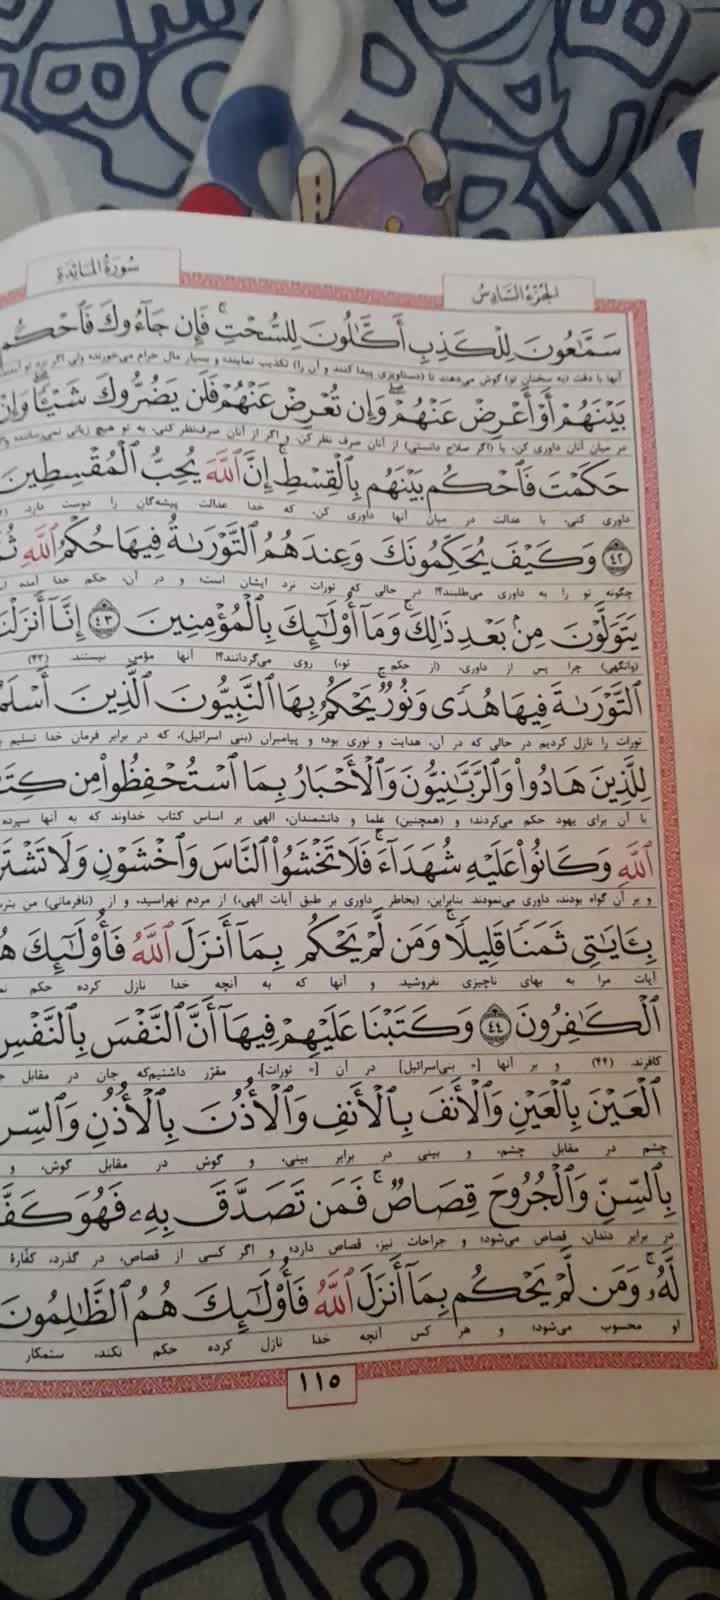 الجزء السادس
سورة المائدة
سَمَّاعُونَ لِلْكَذِبِ أَكَّالُونَ لِلسُّحْتِ ۚ فَإِن جَاءُوكَ فَاحْكُم
آنها با دقت (به سخنان تو) گوش می‌دهند تا (دستاویزی پیدا کنند و آن را) تکذیب نمایند؛ و بسیار مال حرام می‌خورند؛ ولی اگر نزد تو
بَيْنَهُمْ أَوْ أَعْرِضْ عَنْهُمْ ۖ وَإِن تُعْرِضْ عَنْهُمْ فَلَن يَضُرُّوكَ شَيْئًا ۖ وَإِنْ
در میان آنان داوری کن، یا (اگر صلاح دانستی) از آنان صرف نظر کن. و اگر از آنان صرف‌نظر کنی، به تو هیچ زیانی نمی‌رسانند؛
حَكَمْتَ فَاحْكُم بَيْنَهُم بِالْقِسْطِ ۚ إِنَّ اللَّهَ يُحِبُّ الْمُقْسِطِينَ
داوری کنی، با عدالت در میان آنها داوری کن، که خدا عدالت پیشه‌گان را دوست دارد.
﴿٤٢﴾ وَكَيْفَ يُحَكِّمُونَكَ وَعِندَهُمُ التَّوْرَاةُ فِيهَا حُكْمُ اللَّهِ
چگونه تو را به داوری می‌طلبند؟! در حالی که تورات نزد ایشان است؛ و در آن، حکم خدا آمده
يَتَوَلَّوْنَ مِن بَعْدِ ذَٰلِكَ ۚ وَمَا أُولَٰئِكَ بِالْمُؤْمِنِينَ ﴿٤٣﴾ إِنَّا أَنزَلْنَا
(وانگهی) چرا پس از داوری، (از حکم تو،) روی می‌گردانند؟! آنها مؤمن نیستند. (۴۳)
التَّوْرَاةَ فِيهَا هُدًى وَنُورٌ ۚ يَحْكُمُ بِهَا النَّبِيُّونَ الَّذِينَ
تورات را نازل کردیم در حالی که در آن، هدایت و نوری بود؛ و پیامبران (بنی اسرائیل)، که در برابر فرمان خدا تسلیم
لِلَّذِينَ هَادُوا وَالرَّبَّانِيُّونَ وَالْأَحْبَارُ بِمَا اسْتُحْفِظُوا مِن
با آن برای یهود حکم می‌کردند؛ و (همچنین) علما و دانشمندان، الهی بر اساس کتاب خداوند که به آنها سپرده
اللَّهِ وَكَانُوا عَلَيْهِ شُهَدَاءَ ۚ فَلَا تَخْشَوُا النَّاسَ وَاخْشَوْنِ وَلَا
و بر آن گواه بودند، داوری می‌نمودند. بنابراین، (بخاطر داوری بر طبق آیات الهی،) از مردم نهراسید، و از (نافرمانی) من
بِآيَاتِي ثَمَنًا قَلِيلًا ۚ وَمَن لَّمْ يَحْكُم بِمَا أَنزَلَ اللَّهُ فَأُولَٰئِكَ
آیات مرا به بهای ناچیزی نفروشید. و آنها که به آنچه خدا نازل کرده حکم
الْكَافِرُونَ ﴿٤٤﴾ وَكَتَبْنَا عَلَيْهِمْ فِيهَا أَنَّ النَّفْسَ بِالنَّفْسِ
کافرند. (۴۴) و بر آنها [= بنی‌اسرائیل] در آن [= تورات]، مقرّر داشتیم‌که جان در مقابل
الْعَيْنَ بِالْعَيْنِ وَالْأَنفَ بِالْأَنفِ وَالْأُذُنَ بِالْأُذُنِ
چشم در مقابل چشم، و بینی در برابر بینی، و گوش در مقابل گوش، و
بِالسِّنِّ وَالْجُرُوحَ قِصَاصٌ ۚ فَمَن تَصَدَّقَ بِهِ فَهُوَ
در برابر دندان، قصاص می‌شود؛ و جراحات نیز، قصاص دارد؛ و اگر کسی از قصاص، در گذرد، کفّارهٔ
لَّهُ ۚ وَمَن لَّمْ يَحْكُم بِمَا أَنزَلَ اللَّهُ فَأُولَٰئِكَ هُمُ الظَّالِمُونَ
او محسوب می‌شود؛ و هر کس آنچه خدا نازل کرده حکم نکند، ستمکار
١١٥